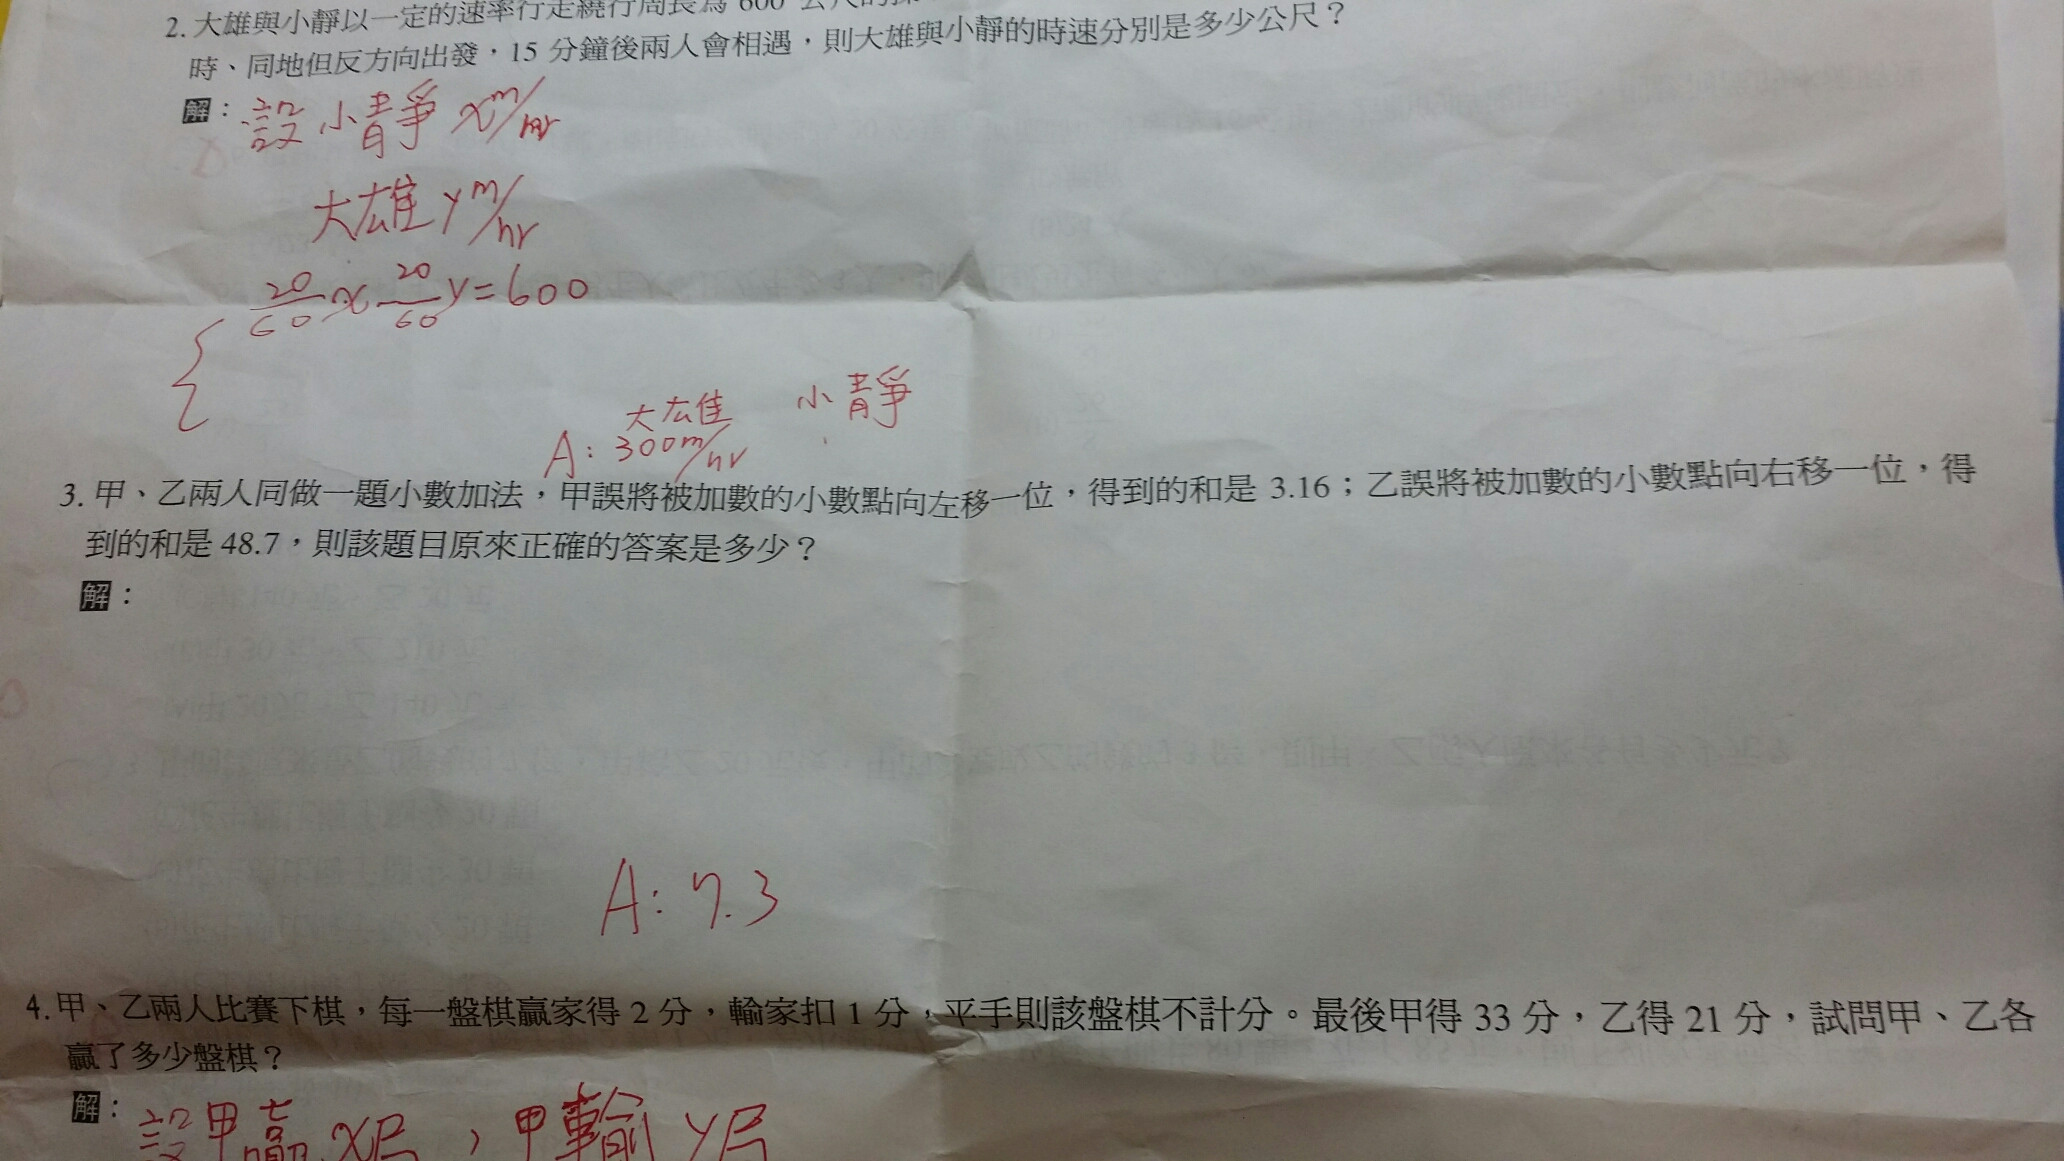 2. 大雄與小靜以一定的速率行走繞行周長為 600 公尺的
時、同地但反方向出發，15 分鐘後兩人會相遇，則大雄與小靜的時速分別是多少公尺？
解：設小靜 x m/hr
大雄 y m/hr
20/60 x 20/60 y = 600
大雄 小靜
A: 300m/hr
3. 甲、乙兩人同做一題小數加法，甲誤將被加數的小數點向左移一位，得到的和是 3.16；乙誤將被加數的小數點向右移一位，得
到的和是 48.7，則該題目原來正確的答案是多少？
解：
A: 7.3
4. 甲、乙兩人比賽下棋，每一盤棋贏家得 2 分，輸家扣 1 分，平手則該盤棋不計分。最後甲得 33 分，乙得 21 分，試問甲、乙各
贏了多少盤棋？
解：設甲贏 x局，甲輸 y局